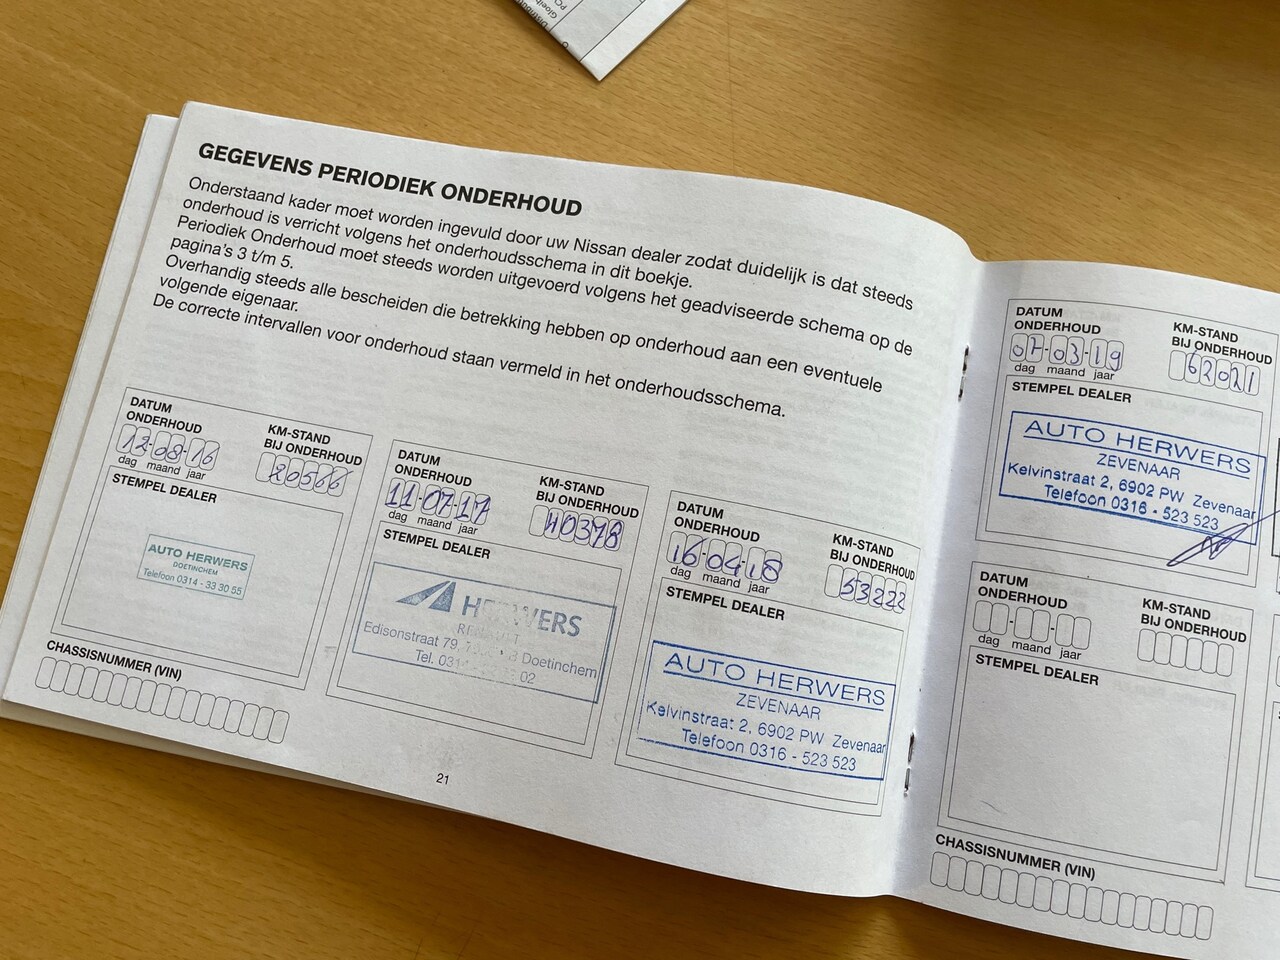 GEGEVENS PERIODIEK ONDERHOUD
Onderstaand kader moet worden ingevuld door uw Nissan dealer zodat duidelijk is dat steeds
onderhoud is verricht volgens het onderhoudsschema in dit boekje.
Periodiek Onderhoud moet steeds worden uitgevoerd volgens het geadviseerde schema op de
pagina's 3 t/m 5.
Overhandig steeds alle bescheiden die betrekking hebben op onderhoud aan een eventuele
volgende eigenaar.
De correcte intervallen voor onderhoud staan vermeld in het onderhoudsschema.
DATUM
ONDERHOUD
12-08-16
dag maand jaar
KM-STAND
BIJ ONDERHOUD
20566
STEMPEL DEALER
AUTO HERWERS
DOETINCHEM
Telefoon 0314 - 33 30 55
CHASSISNUMMER (VIN)
DATUM
ONDERHOUD
11-07-17
dag maand jaar
KM-STAND
BIJ ONDERHOUD
40378
STEMPEL DEALER
HERWERS
Edisonstraat 79, Doetinchem
Tel. 02
DATUM
ONDERHOUD
16-04-18
dag maand jaar
KM-STAND
BIJ ONDERHOUD
53222
STEMPEL DEALER
AUTO HERWERS
ZEVENAAR
Kelvinstraat 2, 6902 PW Zevenaar
Telefoon 0316 - 523 523
21
DATUM
ONDERHOUD
07-03-19
dag maand jaar
KM-STAND
BIJ ONDERHOUD
62021
STEMPEL DEALER
AUTO HERWERS
ZEVENAAR
Kelvinstraat 2, 6902 PW Zevenaar
Telefoon 0316 - 523 523
DATUM
ONDERHOUD
dag maand jaar
KM-STAND
BIJ ONDERHOUD
STEMPEL DEALER
CHASSISNUMMER (VIN)